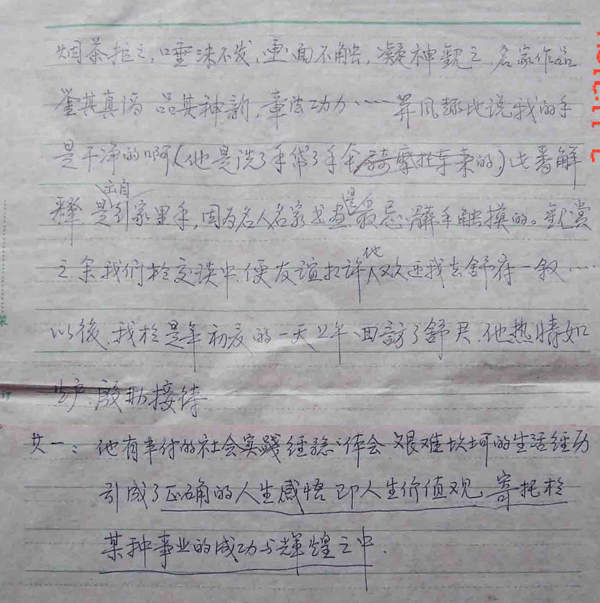 烟茶拒之,唾沫不发,画面不触,凝神观之 名家作品
鉴其真伪 品其神韵,章法功力……昇凤趣此说我的手
是干净的啊(他是洗了手带了手套骑摩托车来的)此番解
释是出自行家里手,因为名人名家书画是最忌髒手触摸的。观赏
之余我们於交谈中便友谊 他 欢迎我去舒府一叙……
以後,我於是年初夏的一天上午回訪了舒君,他热情如
生炉 殷勤接待
其一:他有半付的社会实践经驗体会 艰难坎坷的生活经历
引成了正确的人生感悟即人生价值观,寄托於
某种事业的成功与輝煌之中.